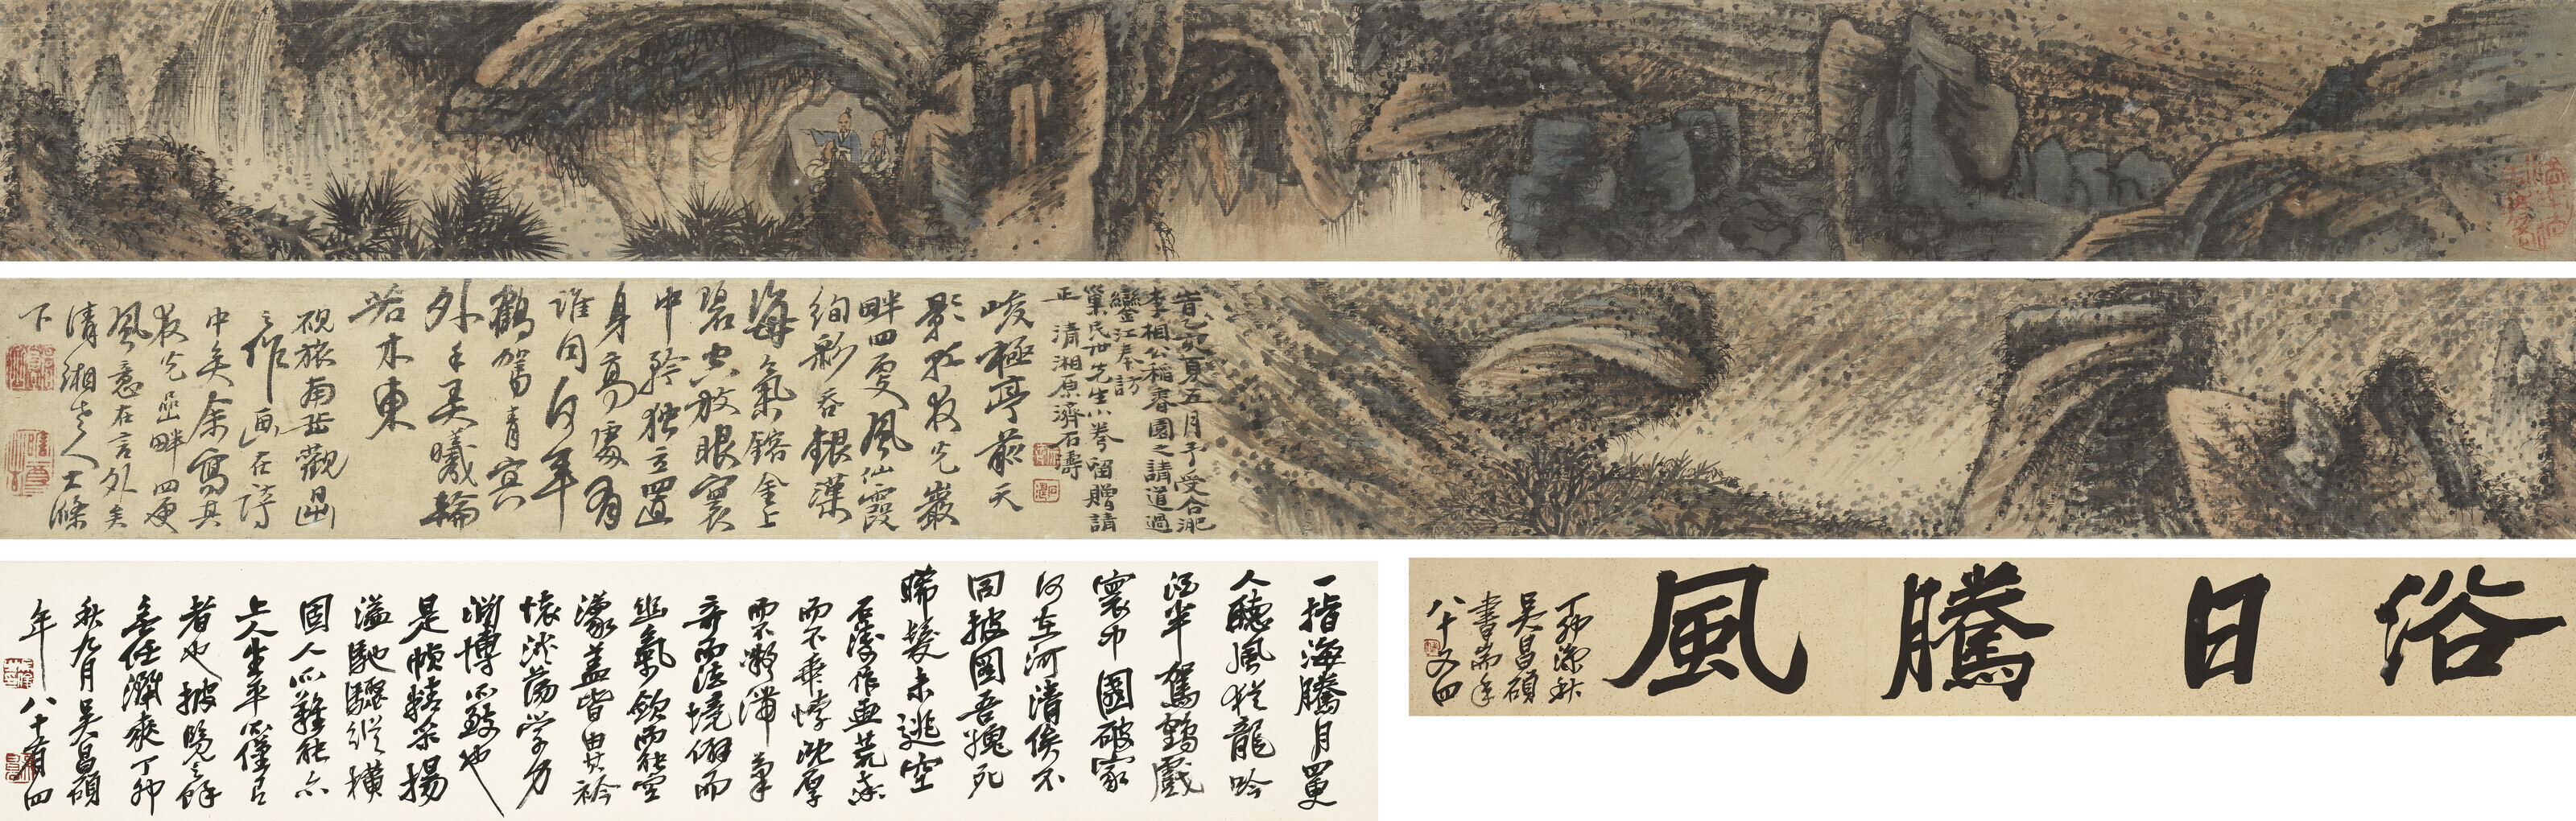 昔乙亥夏五月予受合淝
李相公稻香園之請道過
鑾江奉訪
巢民世先生小卷留贈請
正 清湘原濟石濤
峻極亭前天
影紅發光巖
畔四更風仙霞
絢彩吞銀漢
海氣鎔金上
碧空放眼寰
中矜獨立置
身高處有
誰同何年
鶴駕青冥
外手弄曦輪
若木東
硯旅南岳觀日出
之作畫在詩
中矣余寫其
發光巖畔四更
風意在言外矣
清湘老人大滌
下
浴日騰風
丁卯深秋
吳昌碩
書耑年
八十又四
一指海騰月四更
人聽風從龍吟
酒半駕鶴戲
寰中國破家
何在河清俟不
同披圖吾愧死
晞髮未逃空
石濤作畫荒率
而不乖悖沈厚
而不凝滯筆
奔而法境僻而
幽氣斂而能空
濛蓋皆由其襟
懷洪蕩學力
淵博所致也
是幀精采揚
溢馳驟縱橫
固人所難能亦
上人生平所僅有
者也披覽之餘
無任爽丁卯
秋九月吳昌碩
年八十有四